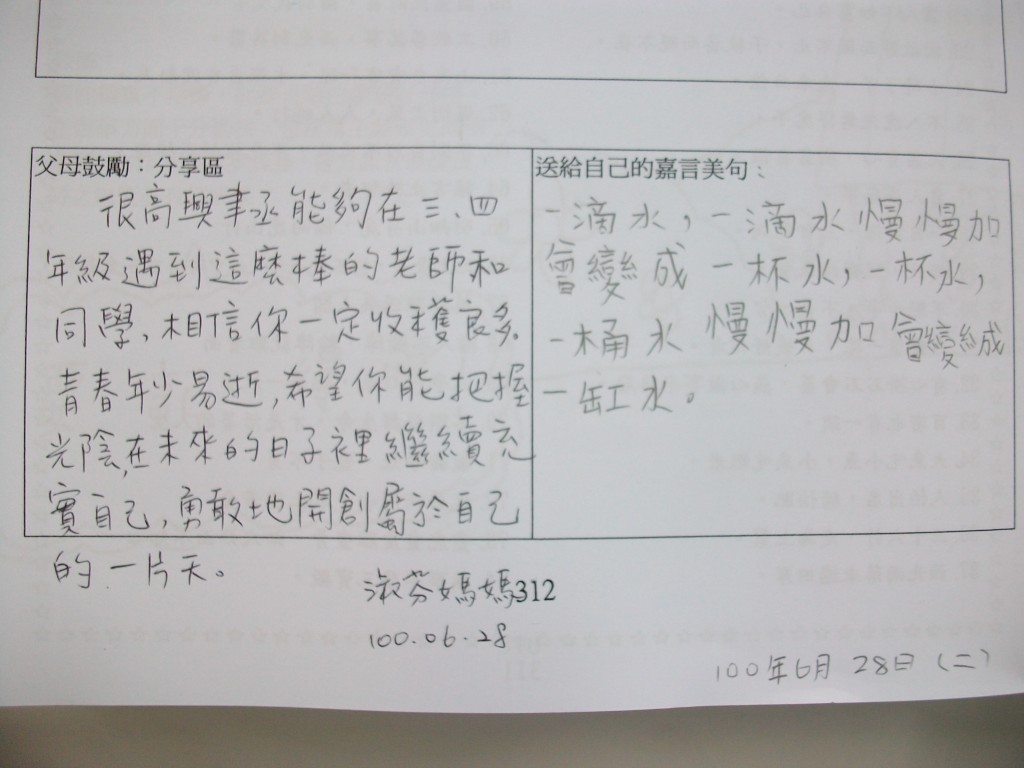 父母鼓勵：分享區
很高興聿丞能夠在三、四
年級遇到這麼棒的老師和
同學，相信你一定收穫良多。
青春年少易逝，希望你能把握
光陰，在未來的日子裡繼續充
實自己，勇敢地開創屬於自己
的一片天。
淑芬媽媽312
100.06.28
送給自己的嘉言美句：
一滴水，一滴水慢慢加
會變成一杯水，一杯水，
一桶水慢慢加會變成
一缸水。
100年6月28日(二)